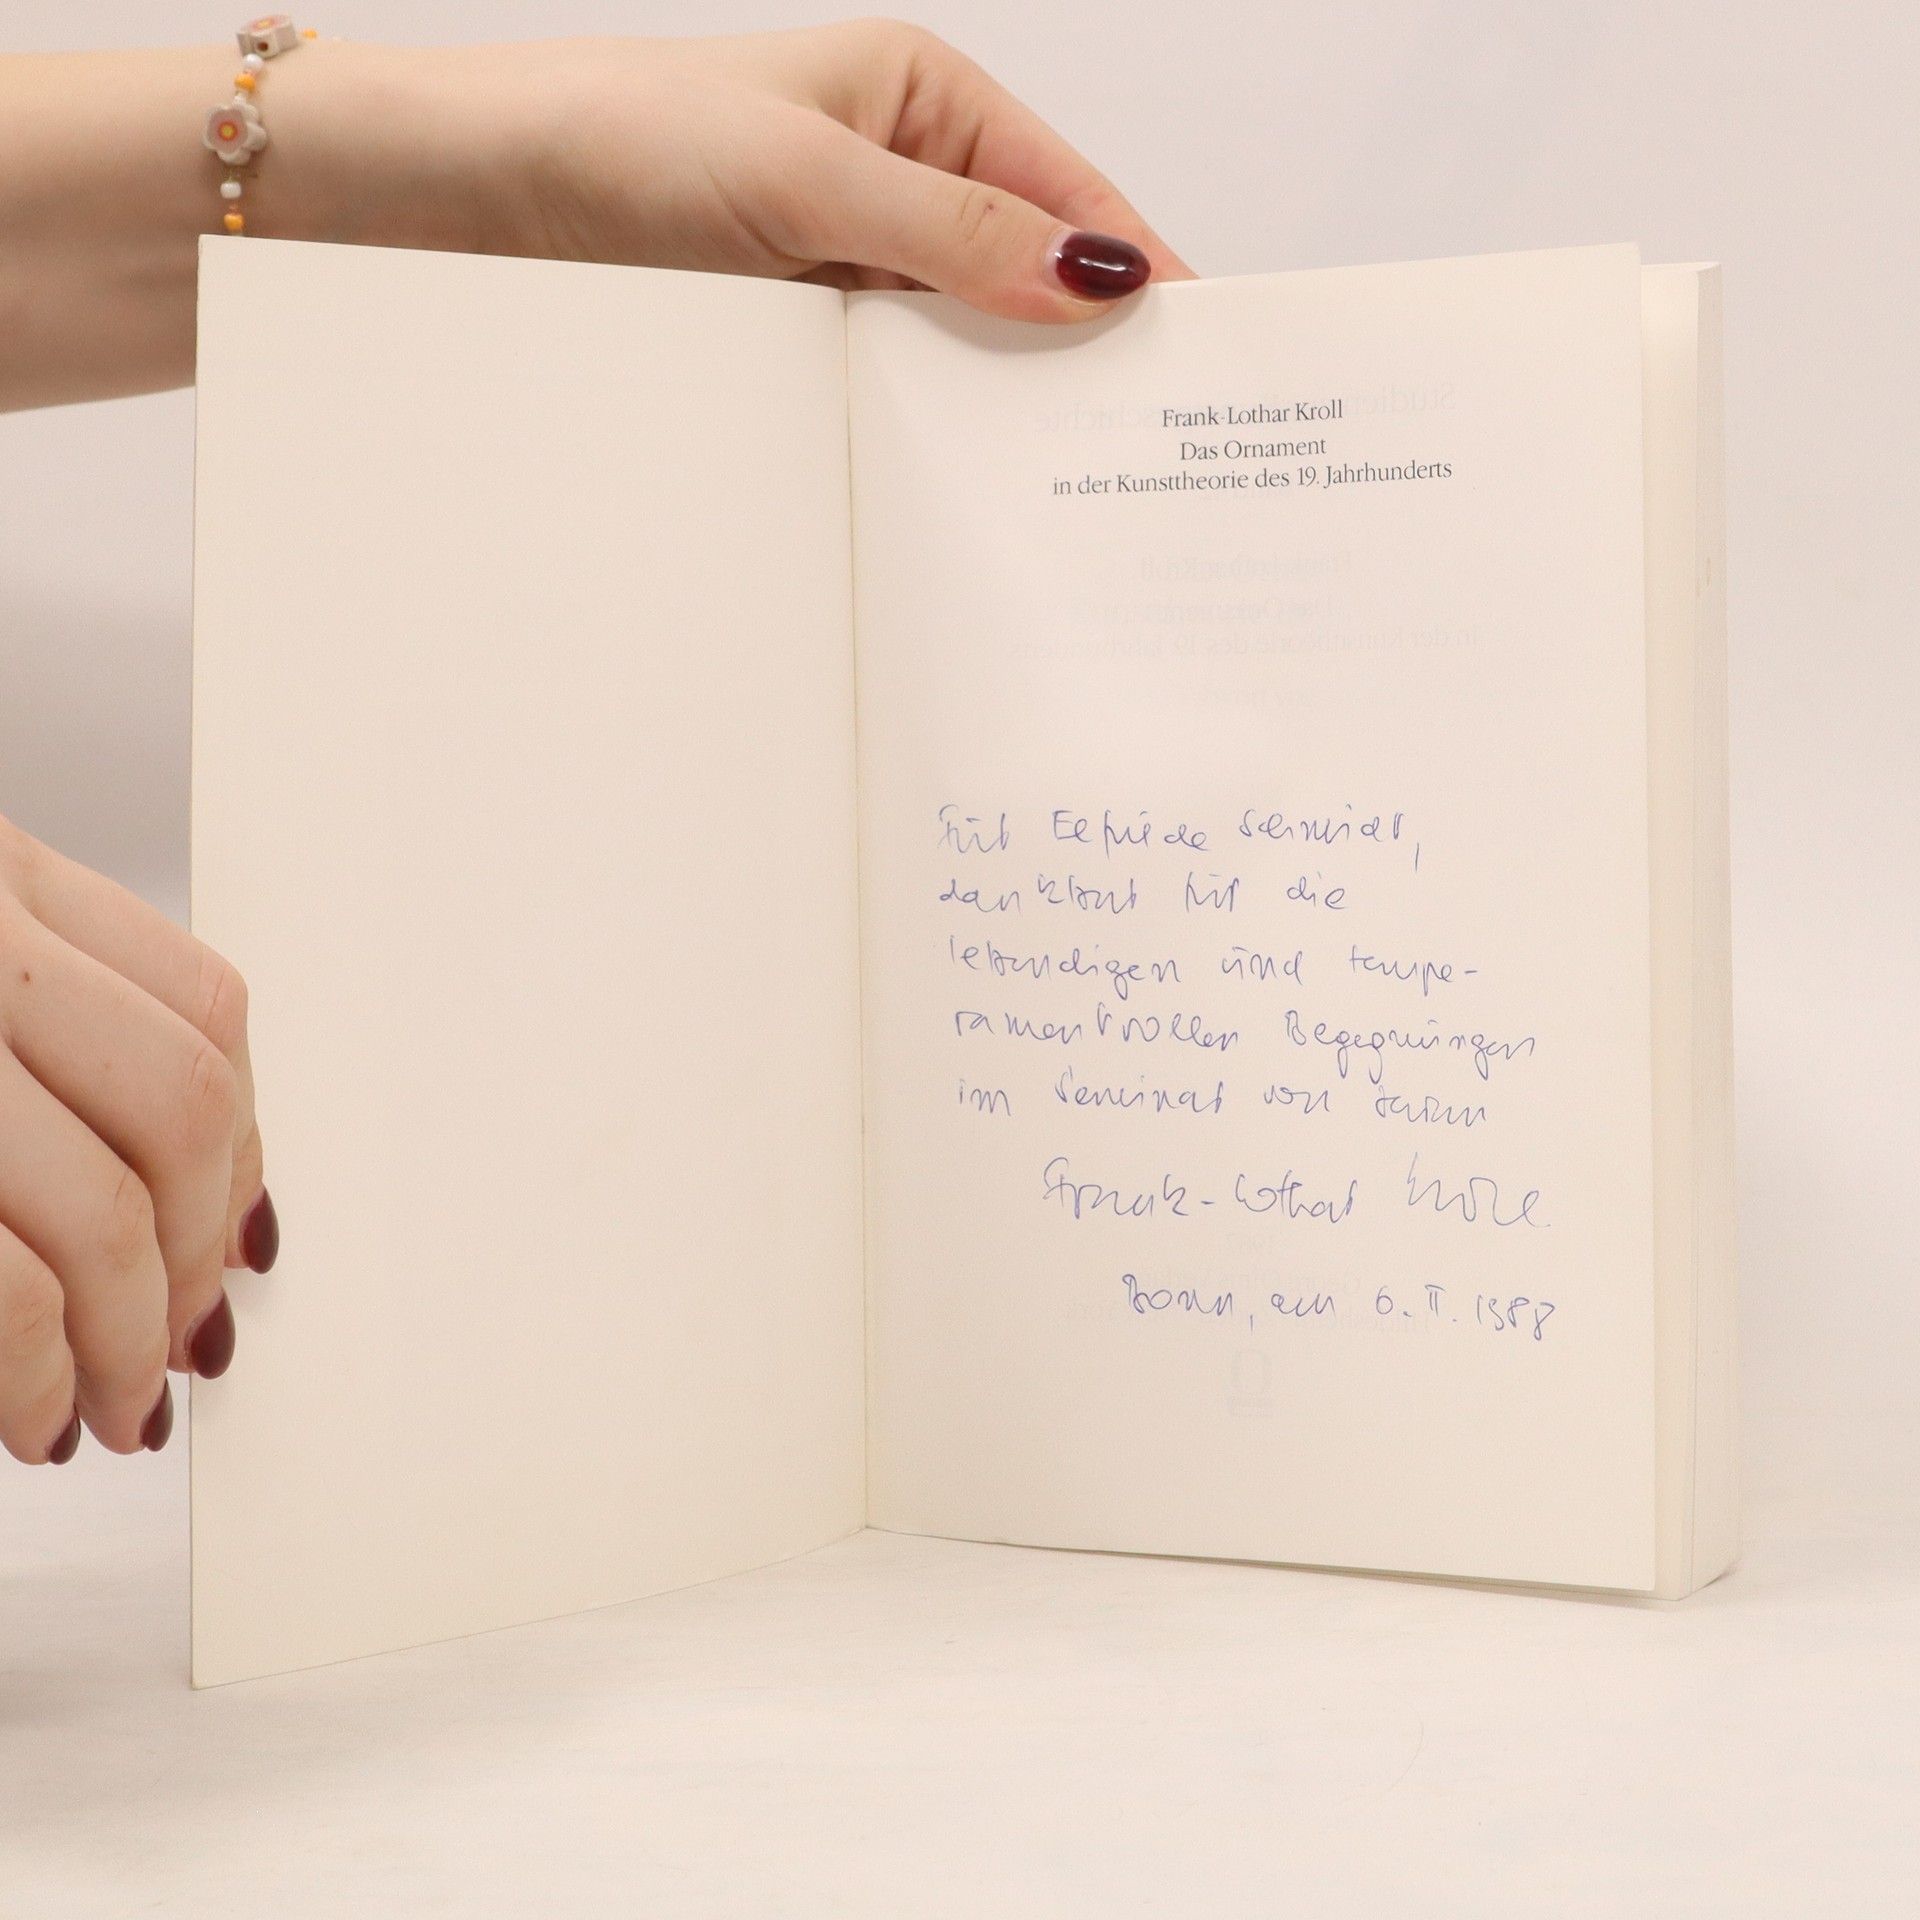 Frank-Lothar Kroll
Das Ornament
in der Kunsttheorie des 19. Jahrhunderts
Für Elfriede Schmidt,
dankbar für die
lebendigen und tempe-
ramentvollen Begegnungen
im Seminar von
Frank-Lothar Kroll
Bonn, am 6. II. 1988